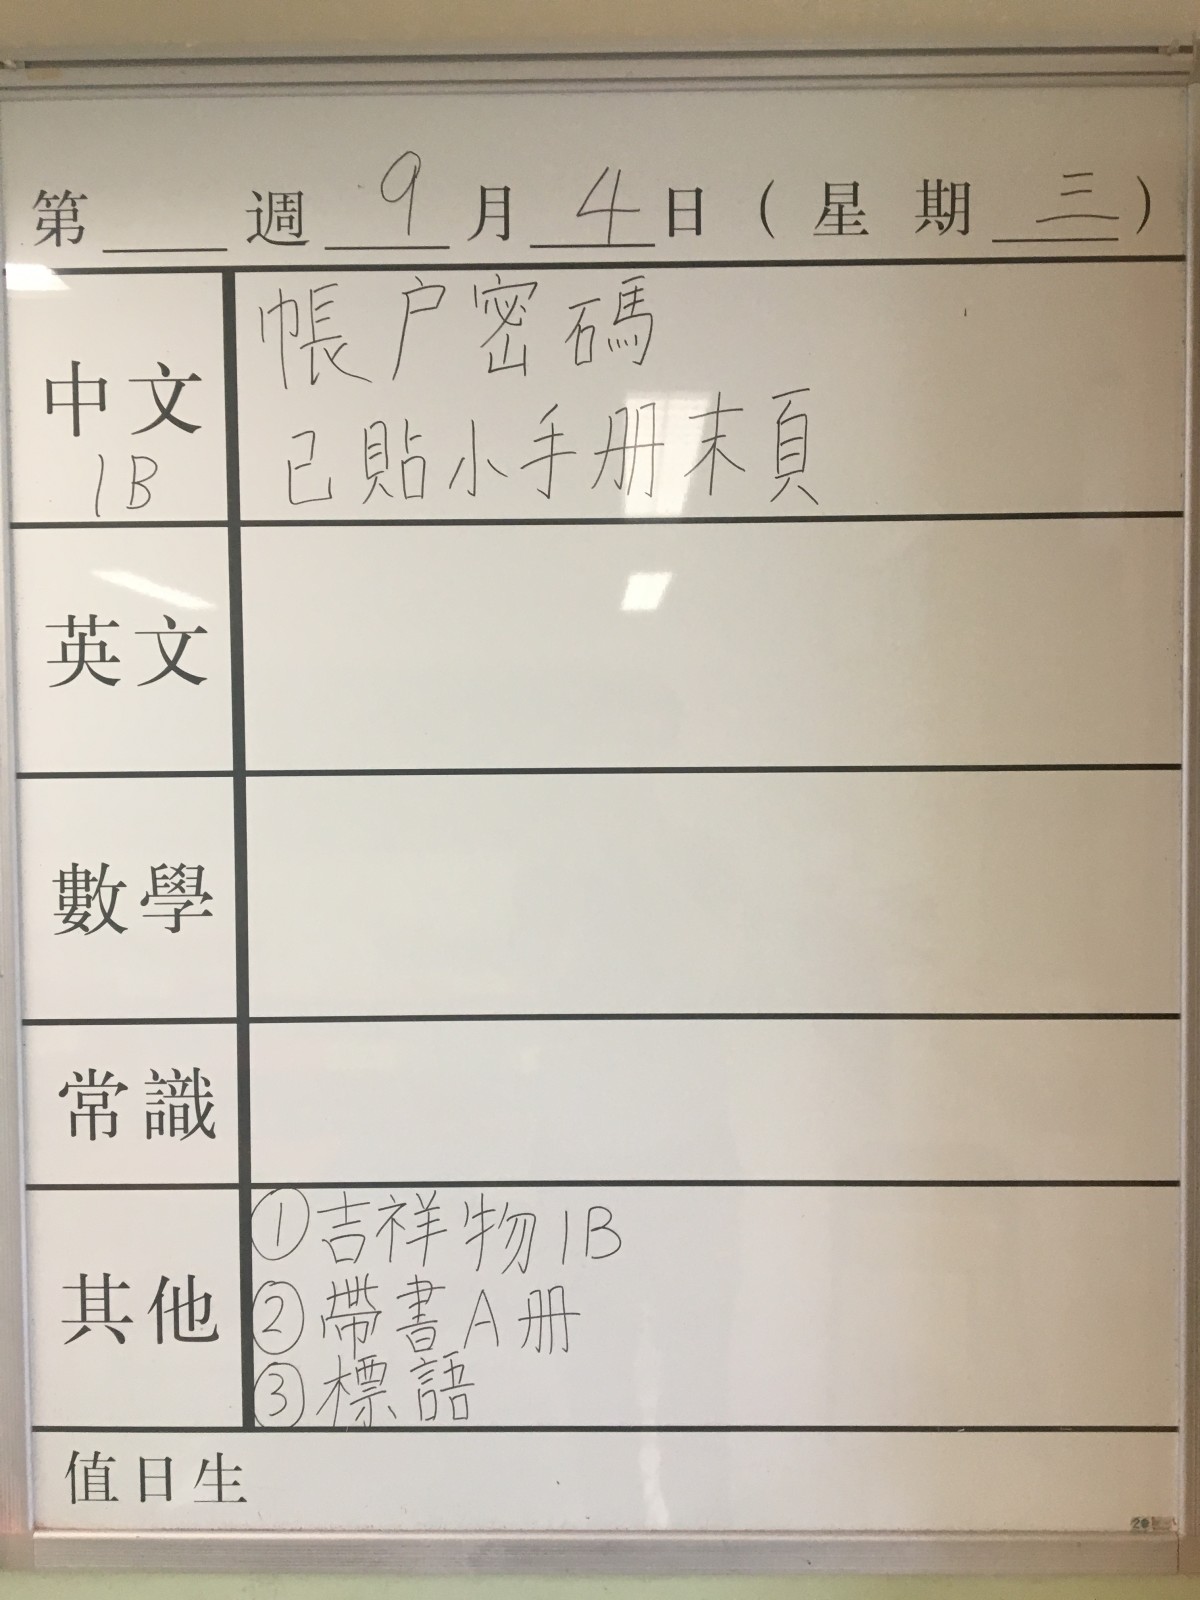 第 週 9 月 4 日 ( 星 期 三 )
中文
1B
帳户密碼
已貼小手册末頁
英文
數學
常識
其他
①吉祥物1B
②帶書A册
③標語
值日生